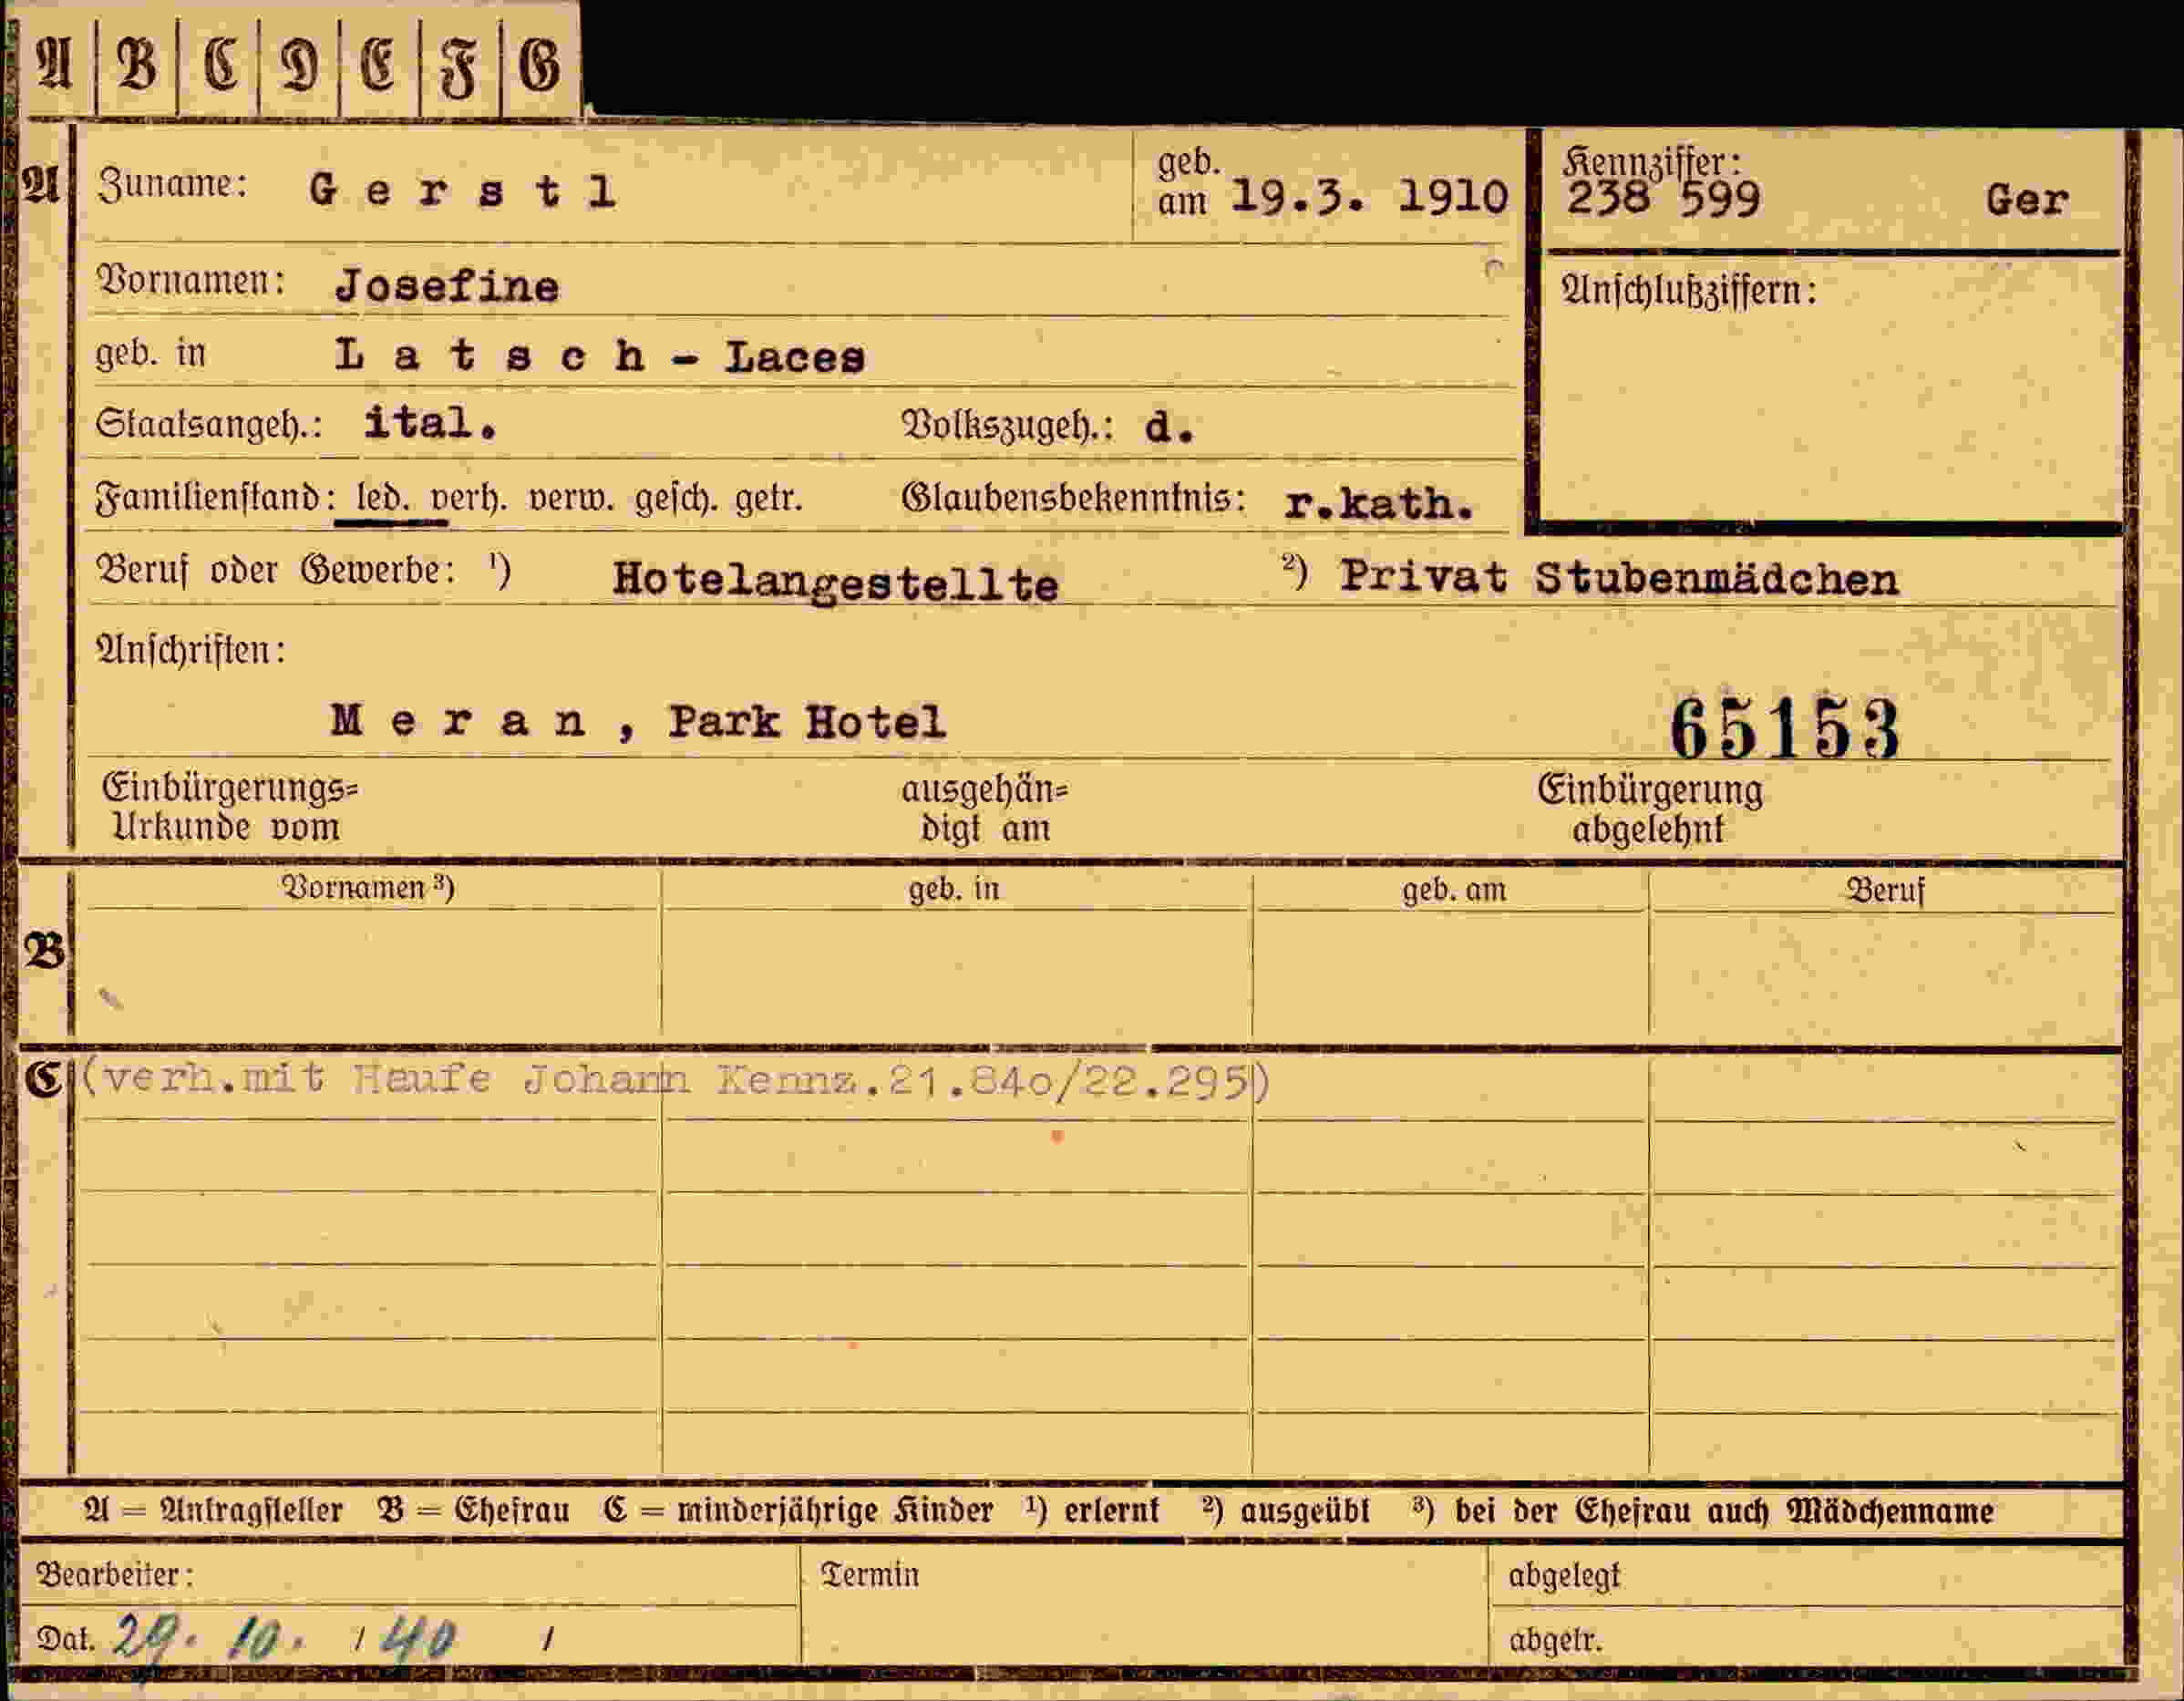 A B C D E F G
A Zuname: Gerstl geb. am 19.3. 1910 Kennziffer: 238 599 Ger
Vornamen: Josefine Anschlußziffern:
geb. in Latsch - Laces
Staatsangeh.: ital. Volkszugeh.: d.
Familienstand: led. verh. verw. gesch. getr. Glaubensbekenntnis: r.kath.
Beruf oder Gewerbe: ¹) Hotelangestellte ²) Privat Stubenmädchen
Anschriften:
Meran, Park Hotel 65153
Einbürgerungs= ausgehän= Einbürgerung
Urkunde vom digt am abgelehnt
B Vornamen ³) geb. in geb. am Beruf
C (verh.mit Haufe Johann Kennz.21.84o/22.295)
A = Antragsteller B = Ehefrau C = minderjährige Kinder ¹) erlernt ²) ausgeübt ³) bei der Ehefrau auch Mädchenname
Bearbeiter: Termin abgelegt
Dat. 29. 10. / 40 / abgetr.